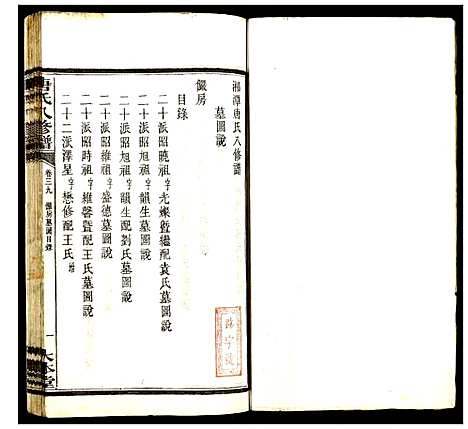 湘潭唐氏八修譜
墓圖說
儼房
目錄
二十派昭曉祖字光燦暨繼配袁氏墓圖說
二十派昭旭祖字韻生墓圖說
二十派昭旭祖字韻生配劉氏墓圖說
二十派昭維祖字盛德墓圖說
二十派昭時祖字維馨暨配王氏墓圖說
二十二派澤星字懋修配王氏
唐氏八修譜
卷三九
房墓圖目錄
一